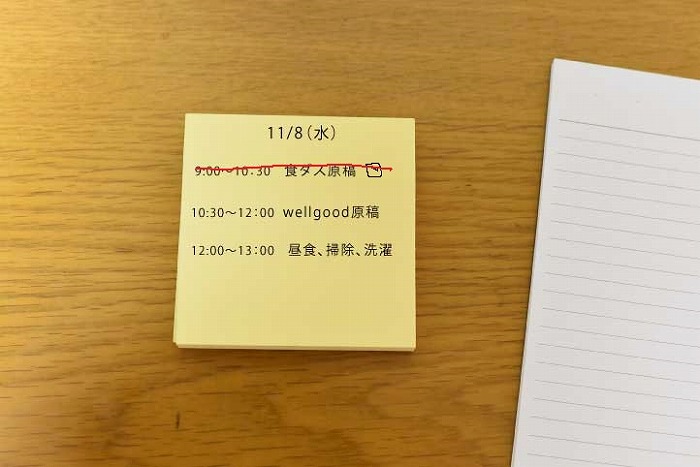 11/8(水)
9:00〜10:30 食ダス原稿
10:30〜12:00 wellgood原稿
12:00〜13:00 昼食、掃除、洗濯